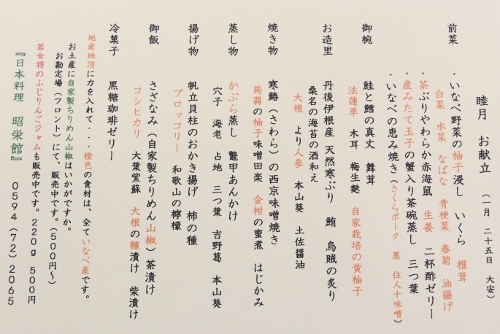 睦月 お献立 (一月 二十五日 大安)
前菜 ・いなべ野菜の柚子浸し いくら 椎茸
白菜 水菜 なばな 青梗菜 春菊 油揚げ
・茶ぶりやわらか赤海鼠 生姜 二杯酢ゼリー
・産みたて玉子の蟹入り茶碗蒸し 三つ葉
・いなべの恵み焼き(さくらポーク 葱 住人十味噌)
御椀 鮭と鱈の真丈 舞茸
法蓮草 木耳 梅生麩 自家栽培の黄柚子
お造里 丹後伊根産 天然寒ぶり 鮪 烏賊の炙り
桑名の海苔の酒和え
大根 より人参 本山葵 土佐醤油
焼き物 寒鰆(さわら)の西京味噌焼き
蒟蒻の柚子味噌田楽 金柑の蜜煮 はじかみ
蒸し物 かぶら蒸し 鼈甲あんかけ
穴子 海老 占地 三つ葉 吉野葛 本山葵
揚げ物 帆立貝柱のおかき揚げ 柿の種
ブロッコリー 和歌山の檸檬
御飯 さざなみ(自家製ちりめん山椒)茶漬け
コシヒカリ 大葉紫蘇 大根の糠漬け 柴漬け
冷菓子 黒糖珈琲ゼリー
地産地消に力を入れて・・・橙色の食材は、全ていなべ産です。
お土産に自家製ちりめん山椒はいかがですか。
お勘定場(フロント)にて、販売中です。(500円〜)
若女将のふじりんごジャムも販売中です。220g 500円
『日本料理 昭栄館』 0594(72)2065